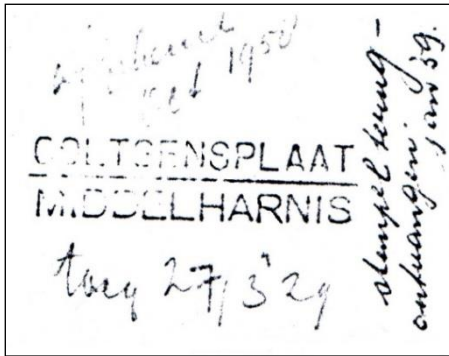 1950
COLTGENSPLAAT
MIDDELHARNIS
toeg 27/3 29
stempel terug-
ontvangen jan '39.